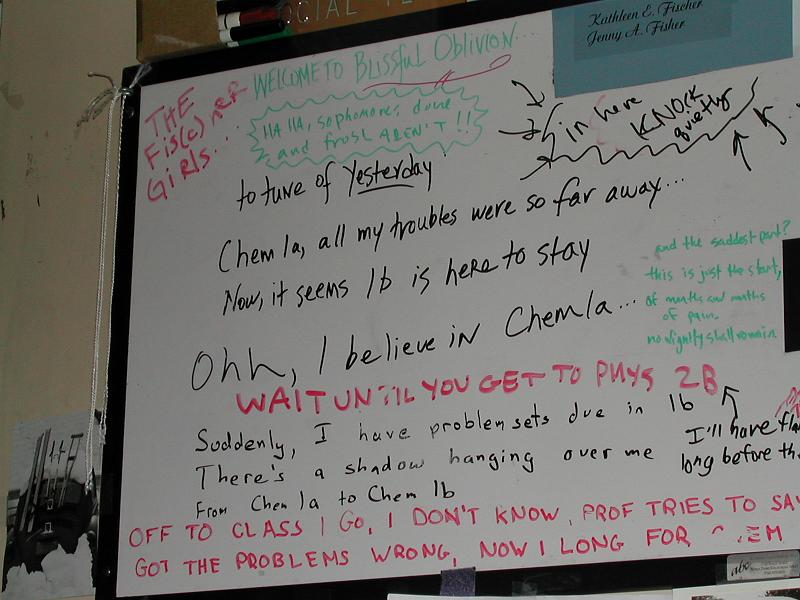 OCIAL
Kathleen E. Fischer
Jenny A. Fisher
THE
Fis(c)her
GIRLS...
WELCOME TO Blissful Oblivion...
HA HA, sophomores done
and frosh AREN'T!!
in here
KNOCK
quietly
to tune of Yesterday
Chem 1a, all my troubles were so far away...
Now, it seems 1b is here to stay
Ohh, I believe in Chem 1a...
and the saddest part?
this is just the start,
of months and months
of pain.
no dignity shall remain
WAIT UNTIL YOU GET TO PHYS 2B
Suddenly, I have problem sets due in 1b
There's a shadow hanging over me
From Chem 1a to Chem 1b
I'll have
long before
OFF TO CLASS I GO, I DON'T KNOW, PROF TRIES TO SA
GOT THE PROBLEMS WRONG, NOW I LONG FOR
abc